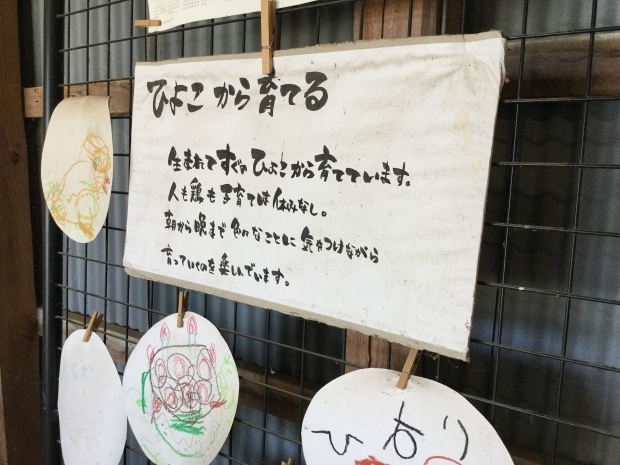 ひよこから育てる
生まれてすぐのひよこから育てています。
人も鶏も子育ては休みなし。
朝から晩まで色々なことに気をつけながら
育っていくのを楽しんでいます。
ひかり